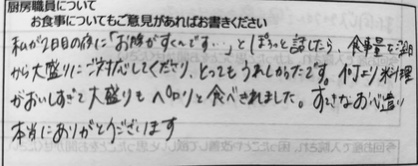 厨房職員について
お食事についてもご意見があればお書きください
私が2日目の夜に「お腹がすくんです…」とぽろっと話したら、食事量を翌日
から大盛りにご対応してくださり、とってもうれしかったです。何より料理
がおいしすぎて大盛りもペロリと食べきれました。すてきなお心遣い
本当にありがとうございます